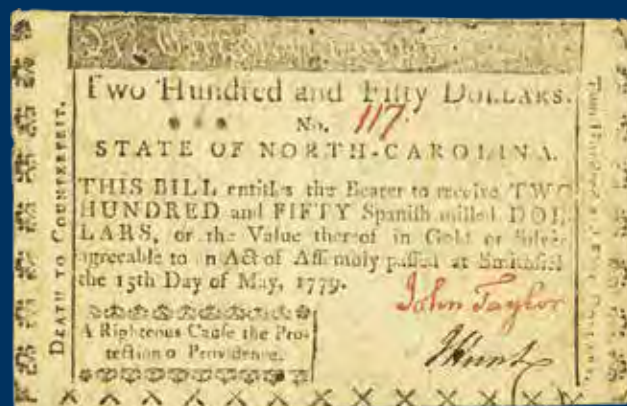 Two Hundred and Fifty DOLLARS.
No. 117
STATE OF NORTH-CAROLINA.
THIS BILL entitles the Bearer to receive TWO
HUNDRED and FIFTY Spanish milled DOL-
LARS, or the Value thereof in Gold or Silver
agreeable to an Act of Assembly passed at Smithfield
the 15th Day of May, 1779.
John Taylor
A Righteous Cause the Pro-
tection o Providence.
JHunt
DEATH TO COUNTERFEIT.